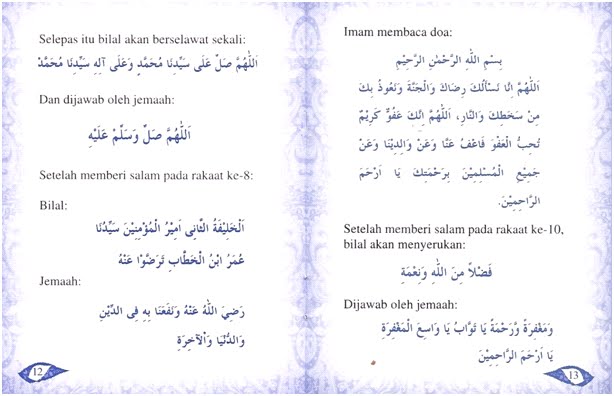 Selepas itu bilal akan berselawat sekali:
اَللّٰهُمَّ صَلِّ عَلَى سَيِّدِنَا مُحَمَّدٍ وَعَلَى آلِهِ سَيِّدِنَا مُحَمَّدْ
Dan dijawab oleh jemaah:
اَللّٰهُمَّ صَلِّ وَسَلِّمْ عَلَيْهِ
Setelah memberi salam pada rakaat ke-8:
Bilal:
اَلْخَلِيْفَةُ الثَّانِى اَمِيْرُ الْمُؤْمِنِيْنَ سَيِّدُنَا
عُمَرُ ابْنُ الْخَطَّابِ تَرَضَّوْا عَنْهُ
Jemaah:
رَضِيَ اللّٰهُ عَنْهُ وَنَفَعَنَا بِهِ فِى الدِّيْنِ
وَالدُّنْيَا وَالْآخِرَةِ
12
Imam membaca doa:
بِسْمِ اللّٰهِ الرَّحْمٰنِ الرَّحِيْمِ
اَللّٰهُمَّ اِنَّا نَسْأَلُكَ رِضَاكَ وَالْجَنَّةَ وَنَعُوْذُ بِكَ
مِنْ سَخَطِكَ وَالنَّارِ، اَللّٰهُمَّ اِنَّكَ عَفُوٌّ كَرِيْمٌ
تُحِبُّ الْعَفْوَ فَاعْفُ عَنَّا وَعَنْ وَالِدِيْنَا وَعَنْ
جَمِيْعِ الْمُسْلِمِيْنَ بِرَحْمَتِكَ يَا اَرْحَمَ
الرَّاحِمِيْنَ.
Setelah memberi salam pada rakaat ke-10,
bilal akan menyerukan:
فَضْلاً مِنَ اللّٰهِ وَنِعْمَةِ
Dijawab oleh jemaah:
وَمَغْفِرَةً وَرَّحْمَةً يَا تَوَّابُ يَا وَاسِعَ الْمَغْفِرَةِ
يَا اَرْحَمَ الرَّاحِمِيْنَ
13